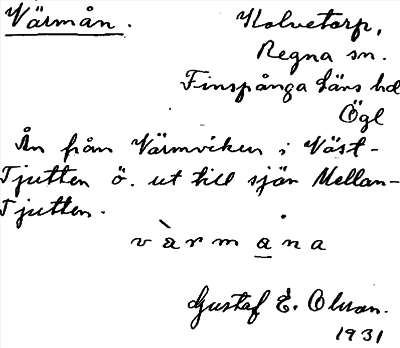 Värmån.
Kolvetorp,
Regna sn.
Finspånga Läns hd
Ögl
Ån från Värmviken i Väst-
Tjutten ö. ut till sjön Mellan-
Tjutten.
v à r m å n a
Gustaf E. Olsson.
1931